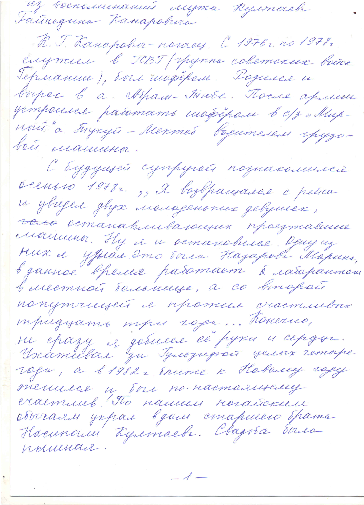 из воспоминаний мужа Култаева
К.Г. Канорович погасу С 1976г по 1978г
служил в ЖВТ/группа советских войск
Германии), был шофёром. Родился и
вырос в а
После армии
устроился работать шофёром в с/з "Мир-
ный" а. Тукуй-Мектеб водителем грузо-
вой машины.
С будущей супругой познакомился
осенью 1977г. ,, Я возвращался с рейса
и увидел двух молоденьких девушек,
останавливающих проезжавшие
машины. Ну я и остановился. Одну из
них я узнал, это была Кадарова Мариям,
в данное время работает лаборантом
в местной больнице, а со второй
попутчицей я прожил счастливых
тридцать три года... Конечно,
не сразу я добился её руки и сердца.
Ухаживал за целых четыре
года, а в 1982г. ближе к Новому году
женился и был по-настоящему
счастлив. По нашим ногайским
обычаям украл в дом старшего брата
Култаева. Свадьба была
пышная..
- 1 -